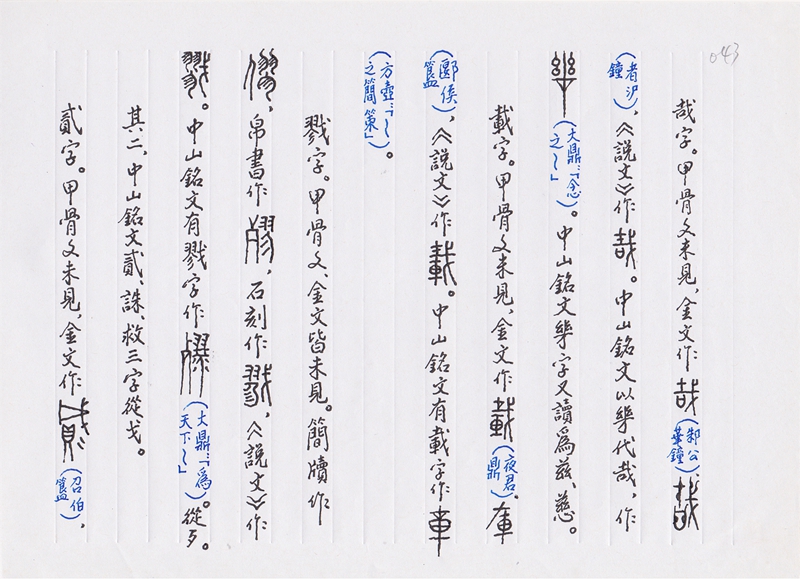 043
哉字。甲骨文未見,金文作哉(邾公華鐘)、
(者沪鐘),《說文》作哉。中山銘文以𢆶代哉,作
(大鼎:「念之〜」)。中山銘文字又讀爲茲、慈。
載字。甲骨文未見,金文作載(夜君鼎)、
(郾侯簋),《說文》作載。中山銘文有載字作
(方壺:「〜之簡策」)。
戮字。甲骨文、金文皆未見。簡牘作
,帛書作,石刻作戮,《說文》作
戮。中山銘文有戮字作(大鼎:「爲天下〜」)。從歹。
其二,中山銘文貳、誅、救三字從戈。
貳字。甲骨文未見,金文作(召伯簋),